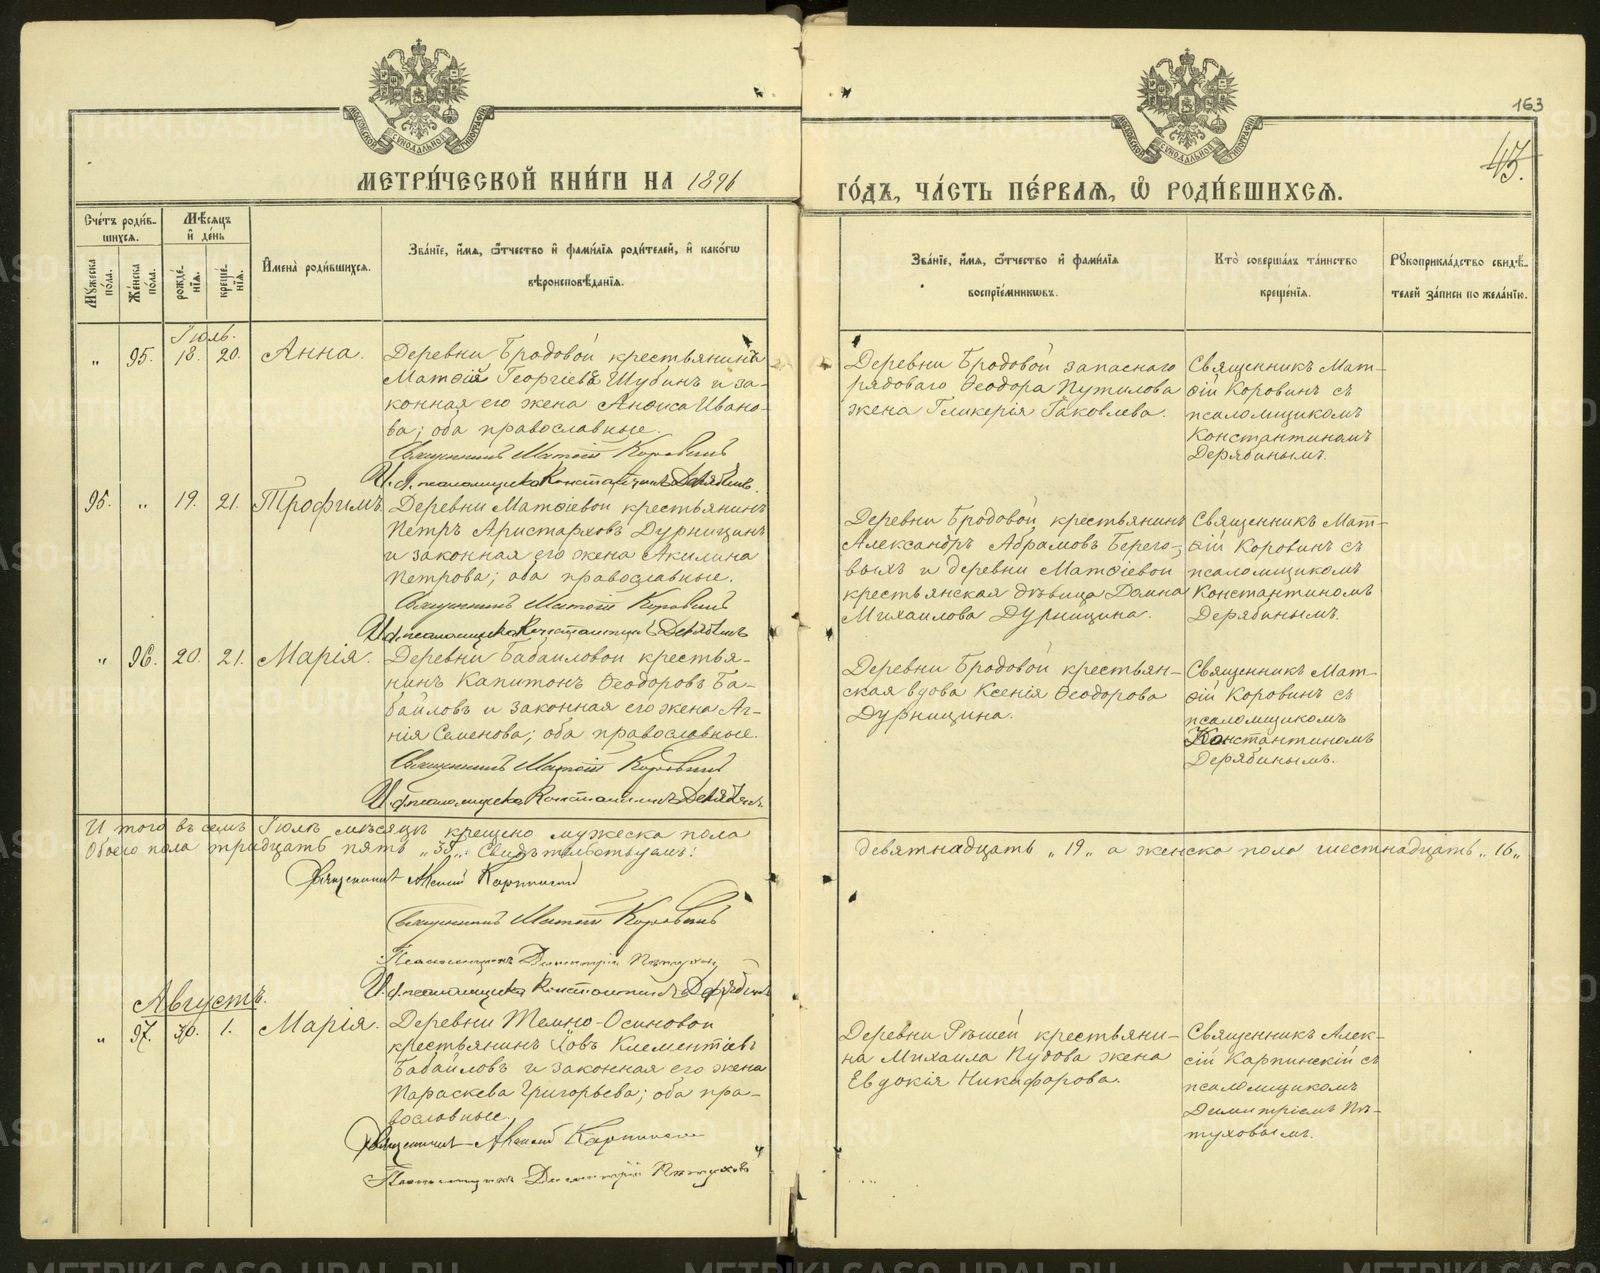 163
43.
МЕТРИ́ЧЕСКОЙ КНИ́ГИ НА 1896
ГО́ДЪ, ЧА́СТЬ ПЕ́РВАѦ, Ѽ РОДИ́ВШИХСѦ.
Счéтъ роди́в-
шихсѧ.
Мѣсѧцъ
и҆ де́нь
Мꙋ́жеска по́ла.
Же́нска по́ла.
рожде́-
нїѧ.
креще́-
нїѧ.
И҆мена̀ роди́вшихсѧ.
Зва́нїе, и҆́мѧ, ѻ҆́тчество и҆ фами́лїѧ роди́телей, и҆ како́гѡ
вѣроисповѣ́данїѧ.
Зва́нїе, и҆́мѧ, ѻ҆́тчество и҆ фами́лїѧ
воспрїе́мникѡвъ.
Кто̀ соверша́лъ та́инство
креще́нїѧ.
Рꙋкоприкла́дство свидѣ́-
телей за́писи по жела́нїю.
Іюль.
„ 95. 18. 20. Анна.
Деревни Бродовой крестьянинъ
Матѳій Георгіевъ Шубинъ и за-
конная его жена Анѳиса Ивано-
ва; оба православные.
Священникъ Матѳій Коровинъ
И. д. псаломщика Константинъ Дерябинъ.
Деревни Бродовой запаснаго
рядоваго Ѳеодора Путилова
жена Гликерія Іаковлева.
Священникъ Мат-
ѳій Коровинъ съ
псаломщикомъ
Константиномъ
Дерябинымъ.
95. „ 19. 21. Трофимъ.
Деревни Матѳіевой крестьянинъ
Петръ Аристарховъ Дурницинъ
и законная его жена Акилина
Петрова; оба православные.
Священникъ Матѳій Коровинъ
И. д. псаломщика Константинъ Дерябинъ
Деревни Бродовой крестьянинъ
Александръ Абрамовъ Берего-
выхъ и деревни Матѳіевой
крестьянская дѣвица Домна
Михаилова Дурницина.
Священникъ Мат-
ѳій Коровинъ съ
псаломщикомъ
Константиномъ
Дерябинымъ.
„ 96. 20. 21. Марія.
Деревни Бабаиловой крестья-
нинъ Капитонъ Ѳеодоровъ Ба-
баиловъ и законная его жена Аг-
нія Семенова; оба православные.
Священникъ Матѳій Коровинъ
И. д. псаломщика Константинъ Дерябинъ.
Деревни Бродовой крестьян-
ская вдова Ксенія Ѳеодорова
Дурницина.
Священникъ Мат-
ѳій Коровинъ съ
псаломщикомъ
Константиномъ
Дерябинымъ.
И того въ семъ Іюлѣ мѣсяцѣ крещено мужеска пола
девятнадцать „19„ а женска пола шестнадцать „16„
Обоего пола тридцать пять „35„. Свидѣтельствуемъ:
Священникъ Алексій Карпинскій
Священникъ Матѳій Коровинъ
Псаломщикъ Димитрій Пѣтухов
И. д. псаломщика Константинъ Дерябинъ
Августъ.
„ 97. 30. 1. Марія.
Деревни Темно-Осиновой
крестьянинъ Іовъ Климентіевъ
Бабаиловъ и законная его жена
Параскева Григорьева; оба пра-
вославные.
Священникъ Алексій Карпинскій
Псаломщикъ Димитрій Пѣтуховъ
Деревни Рѣшей крестьяни-
на Михаила Пудова жена
Евдокія Никифорова.
Священникъ Алек-
сій Карпинскій съ
псаломщикомъ
Димитріемъ Пѣ-
туховымъ.
METRIKI.GASO-URAL.RU